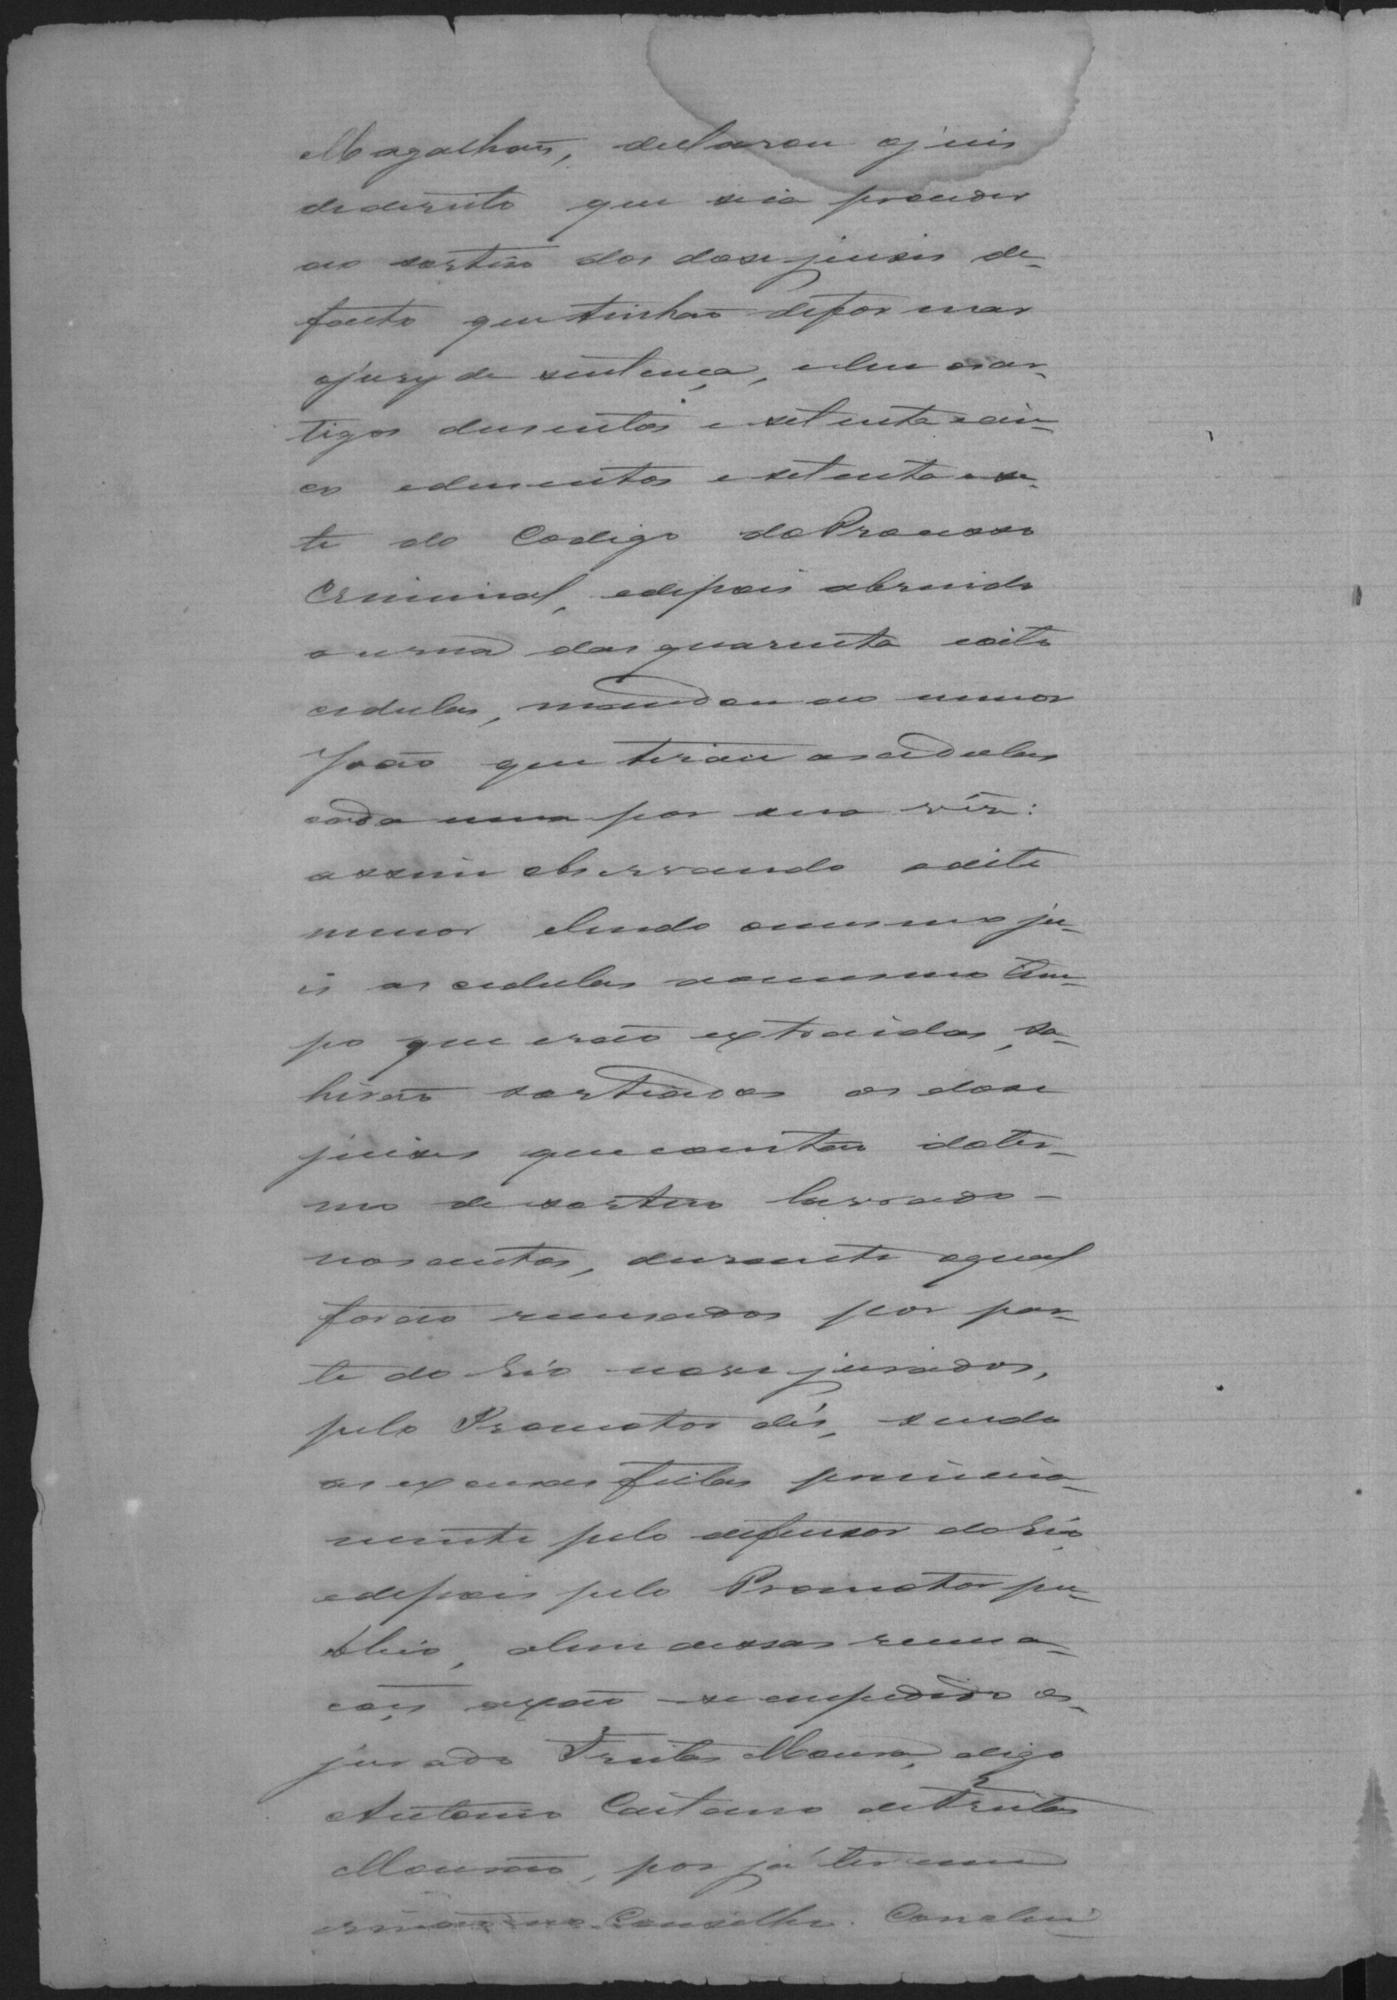 Magalhães, declarou o juis
de direito que ia proceder
ao sorteio dos dose juises de
facto que tinhão de formar
o jury de sentença, e leu os ar-
tigos dusentos e setenta e cin-
co e dusentos e setenta e se-
te do Codigo do Processo
Criminal, e depois abrindo
a urna das quarenta e oito
cedulas, mandou ao menor
João que tirasse as cedulas
cada uma por sua vez:
assim observando o dito
menor e lendo o mesmo ju-
is as cedulas ao mesmo tem-
po que erão extrahidas, sa-
hirão sorteados os dose
juises que constão do ter-
mo de sorteio lavrado
nos autos, durante o qual
forão recusados por par-
te do Réo nove jurados,
pelo Promotor dés, sendo
as excusas feitas primeira-
mente pelo defensor do Réo
e depois pelo Promotor pu-
blico, alem dessas recusa-
ções deo-se empedido o
jurado Freitas Mourão, digo
Antonio Caetano de Freitas
Mourão, por já ter um
irmão no Conselho. Conclui